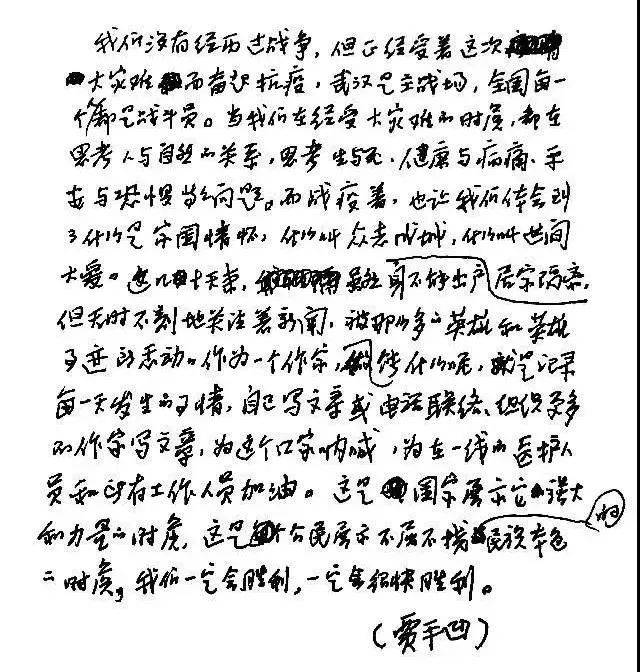 我们没有经历过战争，但正经受着这次
大灾难而奋起抗疫，武汉是主战场，全国每一
个都是战斗员。当我们在经受大灾难的时候，都在
思考人与自然的关系，思考生与死、健康与病痛、平
安与恐惧等等问题。而战疫着，也让我们体会到
了什么是家国情怀，什么叫众志成城，什么叫世间
大爱。这几十天来，虽然身不能出户，居家隔离，
但无时不刻地关注着新闻，被那么多的英雄和英雄
事迹所感动。作为一个作家，能做什么呢，就是记录
每一天发生的事情，自己写文章或电话联络、组织更多
的作家写文章，为这个国家呐喊，为在一线的医护人
员和所有工作人员加油。这是国家展示它的强大
和力量的时候，这是公民展示不屈不挠的民族本色
的时候，我们一定会胜利，一定会很快胜利。
（贾平凹）